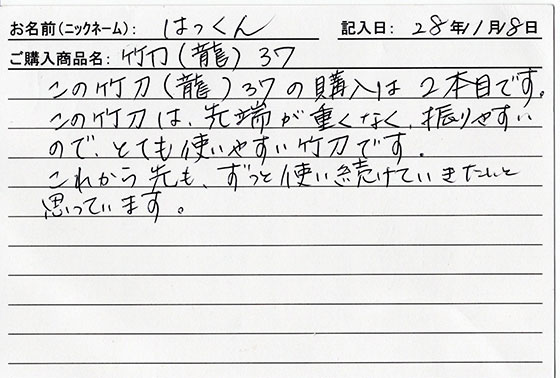 お名前(ニックネーム): はっくん 記入日: 28年11月18日
ご購入商品名: 竹刀(龍)37
この竹刀(龍)37の購入は2本目です。
この竹刀は、先端が重くなく、振りやすい
ので、とても使いやすい竹刀です。
これから先も、ずっと使い続けていきたいと
思っています。